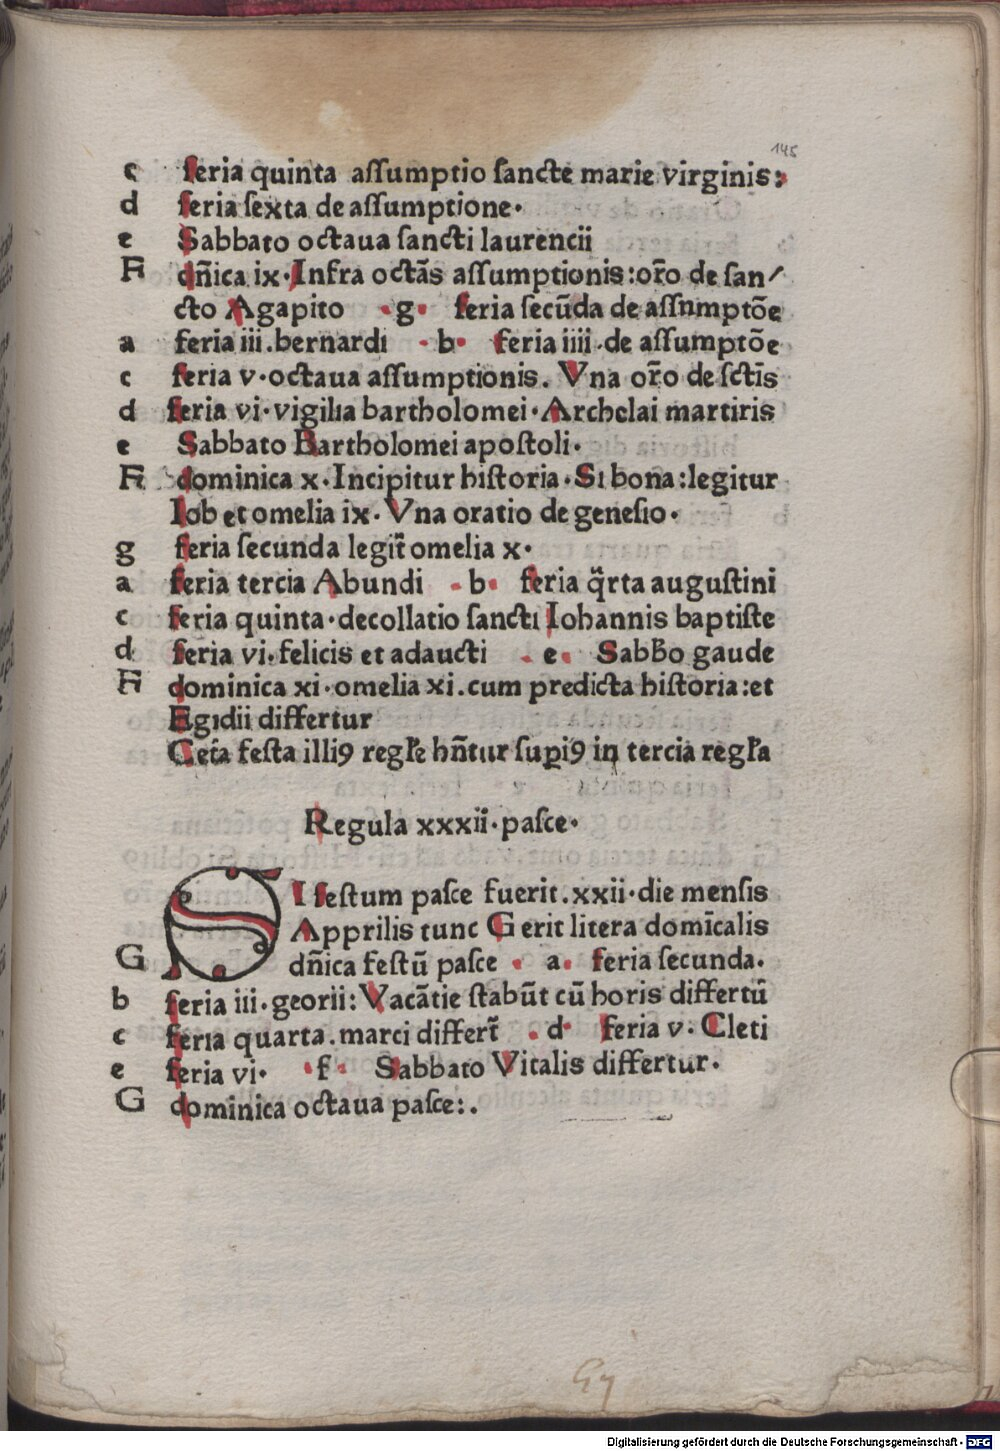 145
c feria quinta assumptio sancte marie virginis:
d feria sexta de assumptione.
e Sabbato octaua sancti laurencii
F dñica ix. Infra octãs assumptionis: oro̅ de san/
cto Agapito .g. feria secũda de assnmptõe
a feria iii. bernardi . b. feria iiii. de assumptõe
c feria v. octaua assumptionis. Vna oro̅ de sctĩs
d feria vi. vigilia bartholomei. Archelai martiris
e Sabbato Bartholomei apostoli.
F dominica x. Incipitur historia. Si bona: legitur
Iob et omelia ix. Vna oratio de genesio.
g feria secunda legit̃ omelia x.
a feria tercia Abundi . b. feria q̃rta augustini
c feria quinta. decollatio sancti Iohannis baptiste
d feria vi. felicis et adaucti . e. Sabb̃o gaude
F dominica xi. omelia xi. cum predicta historia: et
Egidii differtur
Cet̃a festa illiꝯ regl̃e hñtur supiꝯ in tercia regl̃a
Regula xxxii. pasce.
SI festum pasce fuerit. xxii. die mensis
Apprilis tunc G erit litera domĩcalis
G dñica festũ pasce . a. feria secunda.
b feria iii. georii: Vacãtie stabũt cũ horis differtũ
c feria quarta. marci differt̃ . d. feria v. Cleti
e feria vi. .f. Sabbato Vitalis differtur.
G dominica octaua pasce:.
Digitalisierung gefördert durch die Deutsche Forschungsgemeinschaft - DFG